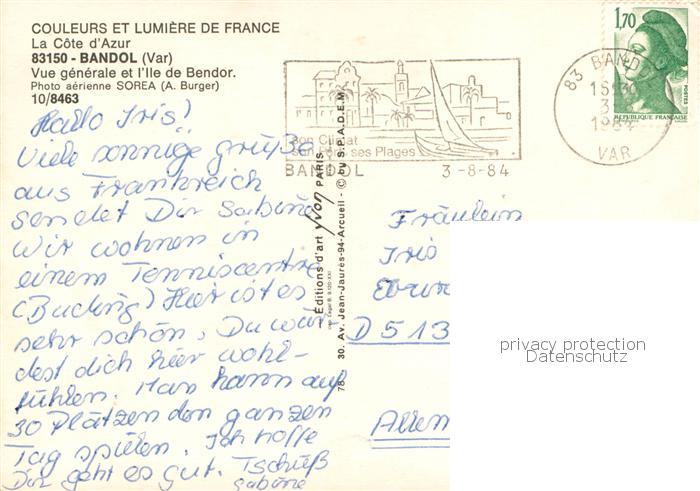 COULEURS ET LUMIÈRE DE FRANCE
La Côte d'Azur
83150 - BANDOL (Var)
Vue générale et l'Ile de Bendor.
Photo aérienne SOREA (A. Burger)
10/8463
Hallo Iris!
Viele sonnige Grüße
aus Frankreich
sendet Dir Sabine
Wir wohnen in
einem Tenniscentre
(Bucking) Hier ist es
sehr schön. Du wür
dest dich hier wohl-
fühlen. Man kann auf
30 Plätzen den ganzen
Tag spielen. Ich hoffe
Dir geht es gut. Tschüß
Sabine
Bon Climat
son Port ses Plages
BANDOL 3-8-84
83 BAND
15H30
3
1984
VAR
1,70
POSTES
REPUBLIQUE FRANÇAISE
Editions d'art yvon PARIS
© by S.P.A.D.E.M.
78 30. Av. Jean-Jaurès-94-Arcueil
Fräulein
Iris
D 513
Allem
privacy protection
Datenschutz